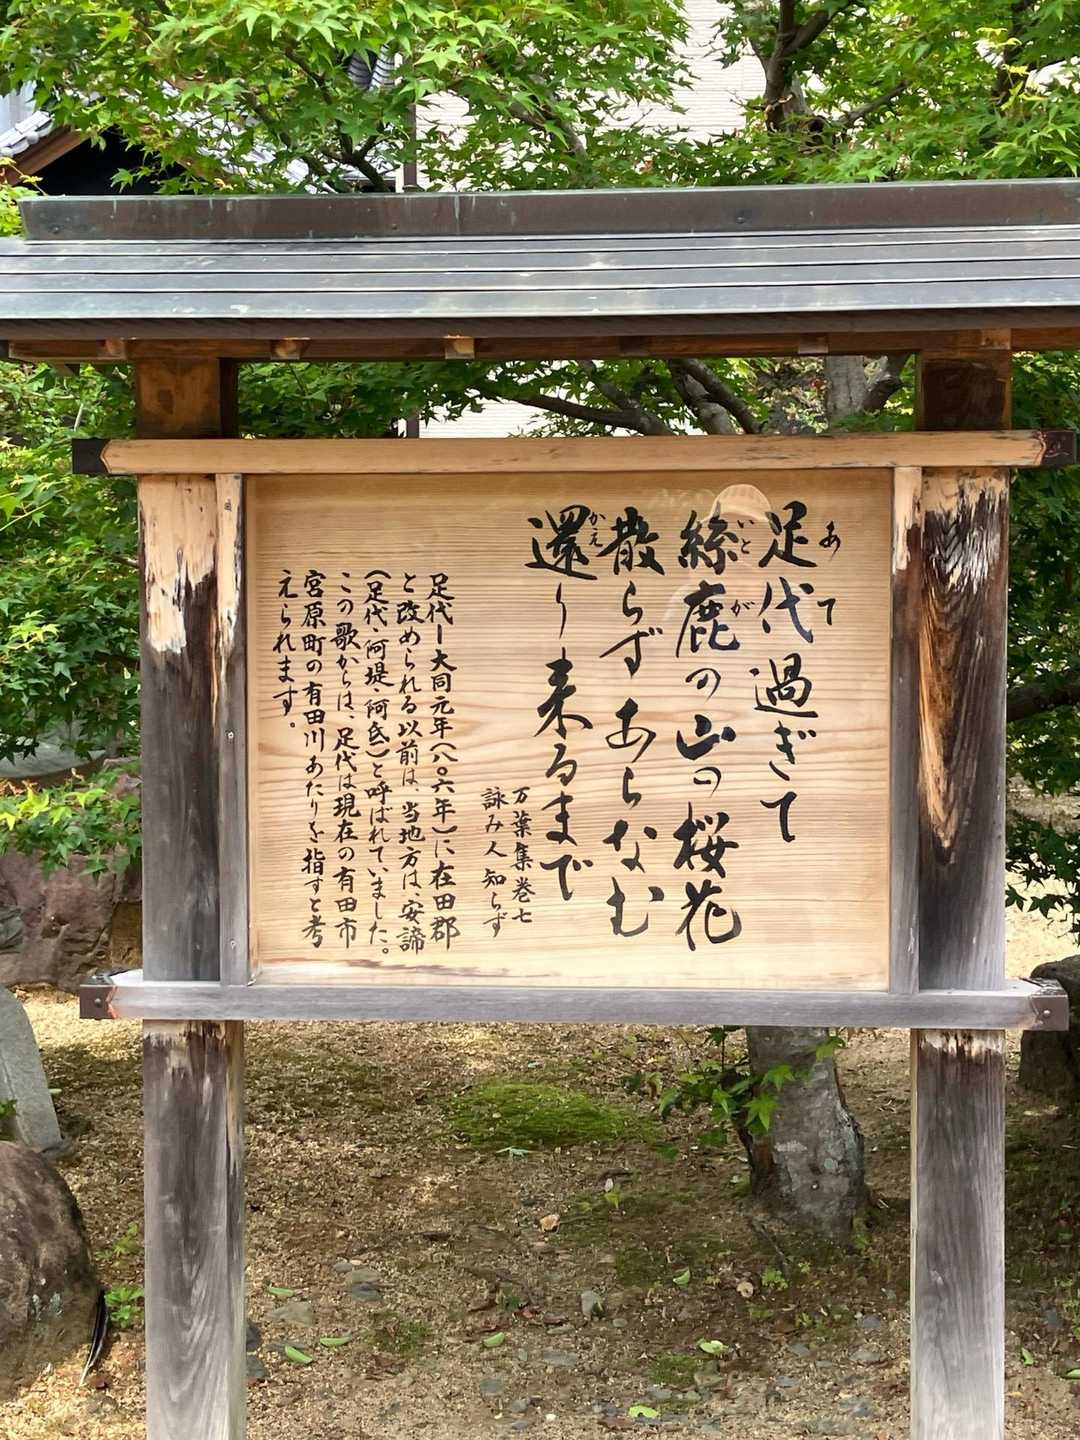 足代過ぎて
あて
絲鹿の山の桜花
いとが
散らずあらなむ
還り来るまで
かえ
万葉集巻七
詠み人知らず
足代ー大同元年(八〇六年)に、在田郡
と改められる以前は、当地方は、安諦
(足代・阿堤・阿氐)と呼ばれていました。
この歌からは、足代は現在の有田市
宮原町の有田川あたりを指すと考
えられます。